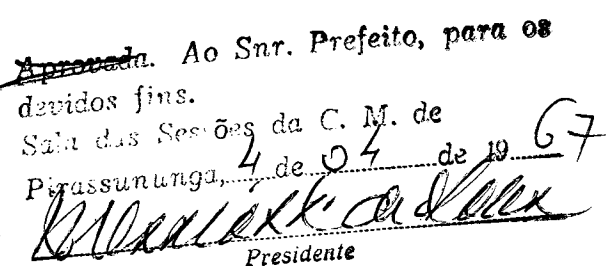 Aprovada. Ao Snr. Prefeito, para os
devidos fins.
Sala das Sessões da C. M. de
Pirassununga, 4 de 04 de 1967
Presidente